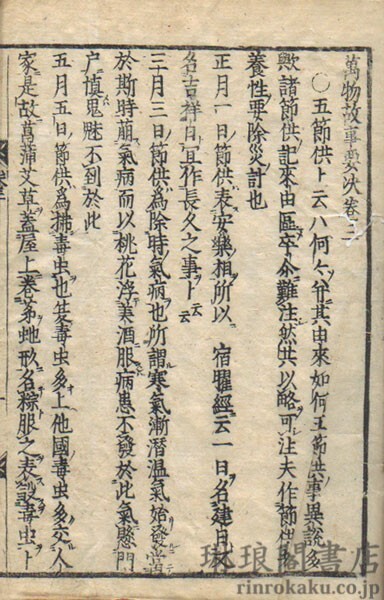 萬物故事要决卷二
〇五節供ト云ハ何々ソ并其由來如何 五節供ノ事異說多
歟諸節供ノ記來由區卒介難注然共以略可注夫作節供
養性要除災計也
正月一日ノ節供ハ表安樂相所以 宿曜經云一日名建日又
名吉祥日宜作長久之事ト云云
三月三日節供為除時氣病也所謂寒氣漸潛溫氣始發
於斯時崩氣病而以桃花浮美酒服病患不發於此氣懸門
户慎鬼魅不到於此
五月五日節供為拂毒虫也爰毒虫多上他國毒虫多交人
家是故菖蒲艾草蓋屋上卷茅虵形名粽服之表殺毒虫ト
琳琅閣書店
rinrokaku.co.jp